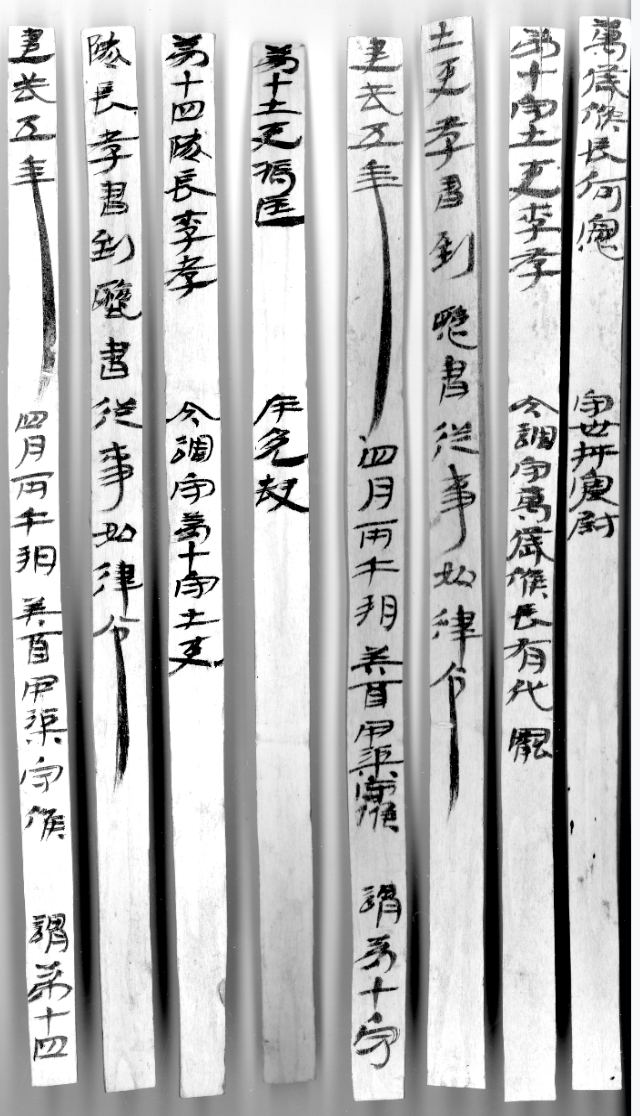 建武五年四月丙午朔癸酉甲渠守候 謂第十四
隧長孝書到聽書從事如律令
第十四隧長李孝 今調守第十守士吏
第十士吏馮匡 斥免缺
建武五年四月丙午朔癸酉甲渠守候 謂第十守
士吏孝書到聽書從事如律令
第十守士吏李孝 今調守萬歲候長有代罷
萬歲候長何憲 守卅井塞尉